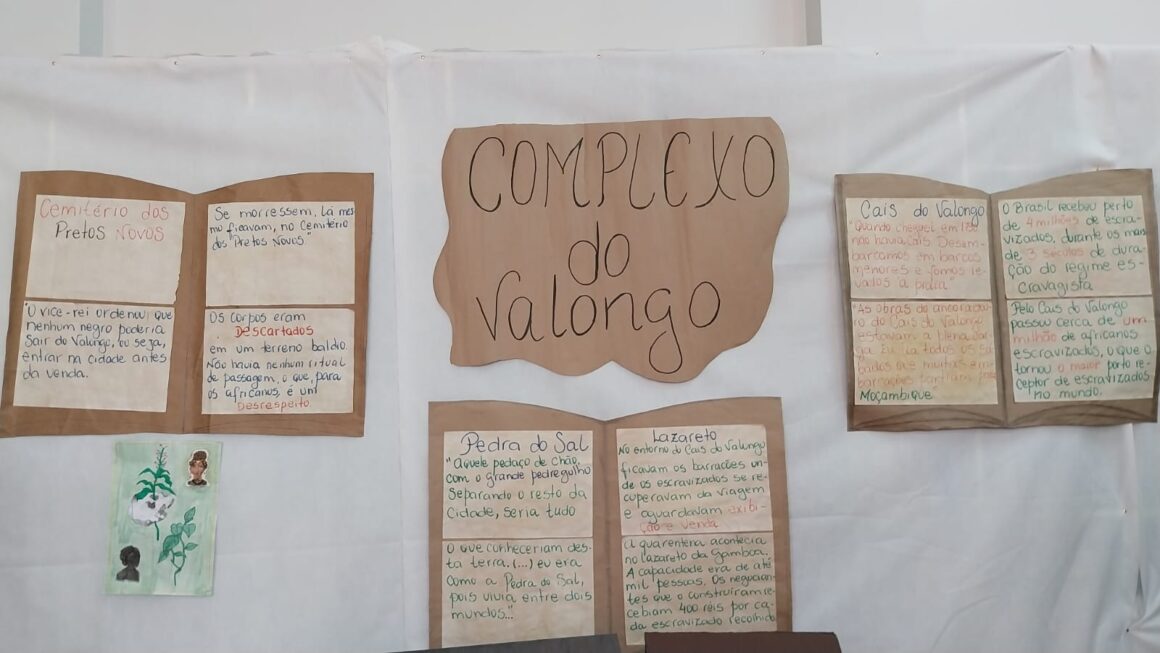 COMPLEXO
do
Valongo
Cemitério dos
Pretos Novos
"O vice-rei ordenou que
nenhum negro poderia
Sair do Valongo, ou seja,
entrar na cidade antes
da venda.
Se morressem, lá mes-
mo ficavam, no Cemitério
dos "Pretos Novos"
Os corpos eram
Descartados
em um terreno baldio.
Não havia nenhum ritual
de passagem, o que, para
os africanos, é um
Desrespeito.
Pedra do Sal
"Aquele pedaço de chão,
com o grande pedregulho
Separando o resto da
Cidade, seria tudo
O que conheceriam des-
ta terra. (...) eu era
como a Pedra do Sal,
pois vivia entre dois
mundos..."
Lazareto
No entorno do Cais do Valongo
ficavam os barracões on-
de os escravizados se re-
cuperavam da viagem
e aguardavam exibi-
ção e venda
A quarentena acontecia
no lazareto da Gamboa.
A capacidade era de até
mil pessoas. Os negocian-
tes que o construíram re-
cebiam 400 réis por ca-
da escravizado recolhido
Cais do Valongo
"Quando cheguei em
não havia cais. Desem-
barcamos em barcos
menores e fomos le-
vados a praia."
"As obras do ancoradou-
ro do Cais do Valongo
estavam a plena
todos os
muitas em-
barcações
Moçambique
O Brasil recebeu perto
de 4 milhões de escra-
vizados, durante os mais
de 3 séculos de dura-
ção do regime es-
Cravagista
Pelo Cais do Valongo
passou cerca de um
milhão de africanos
escravizados, o que o
tornou o maior porto re-
ceptor de escravizados
no mundo.